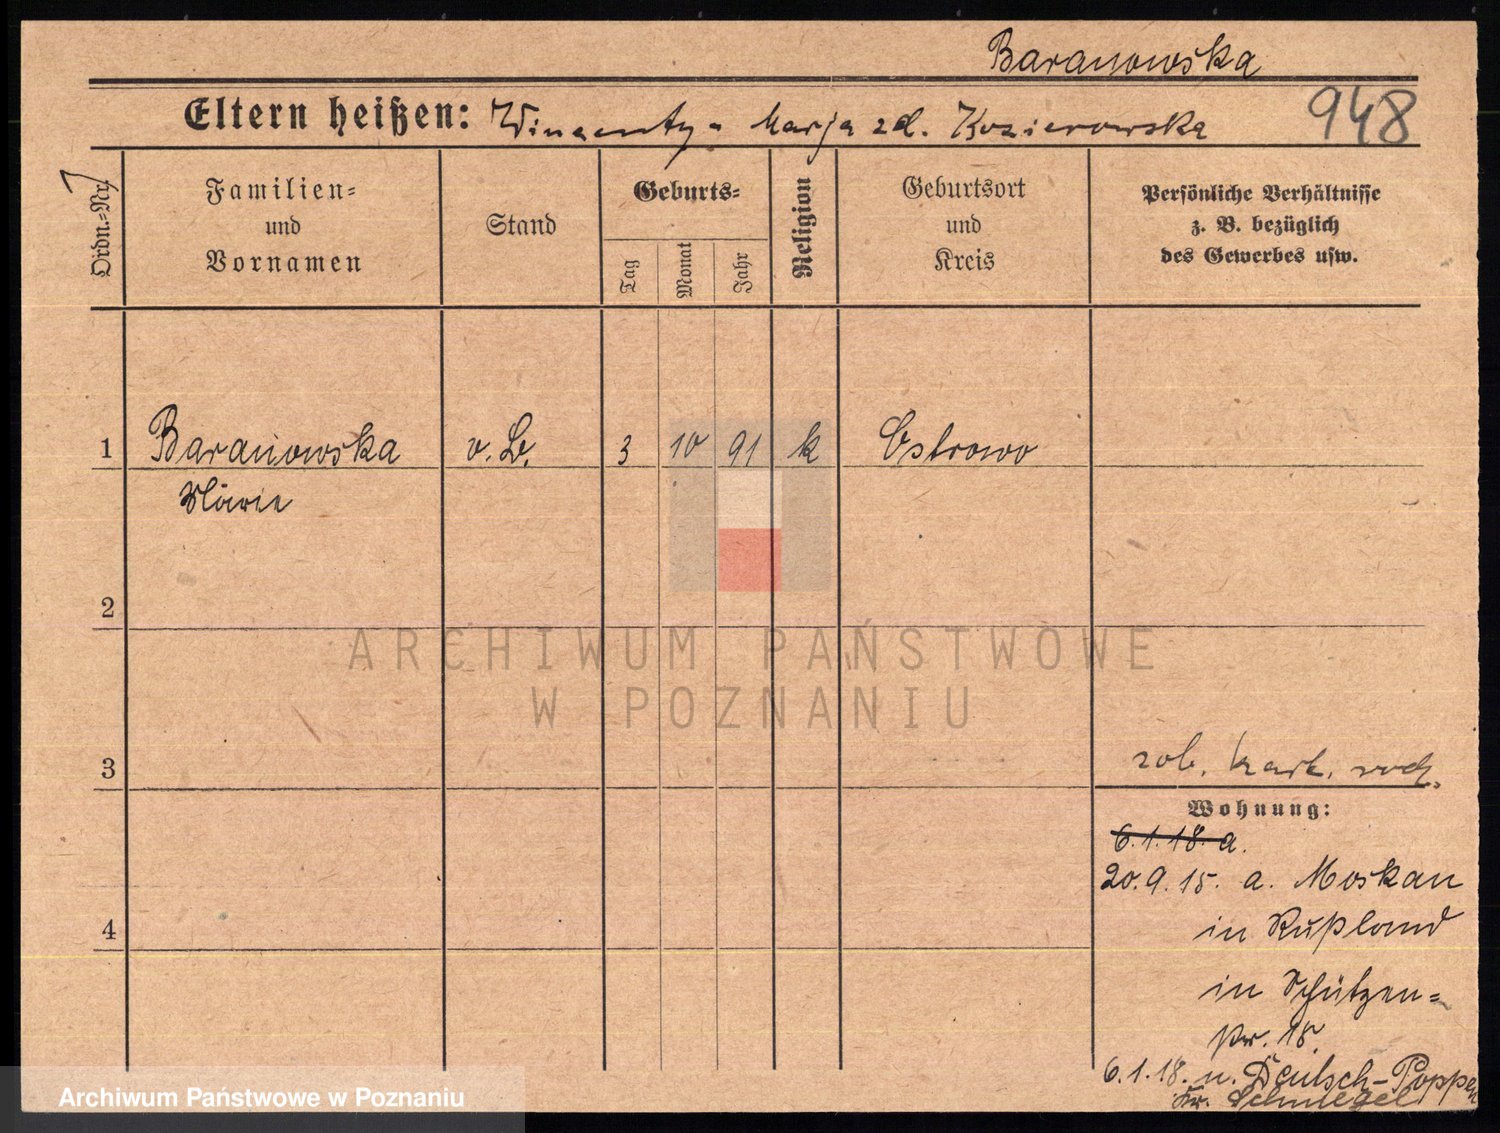 Baranowska
Eltern heißen: Wincenty - Marja zd. Kozierowska
948
Ordn.-Nr.
Familien- und Vornamen
Stand
Geburts-
Tag
Monat
Jahr
Religion
Geburtsort und Kreis
Persönliche Verhältnisse z. B. bezüglich des Gewerbes usw.
1 Baranowska v. B. 3 10 91 k Ostrowo
Marie
2
ARCHIWUM PAŃSTWOWE
W POZNANIU
3
zob. kart. rodz.
Wohnung:
6.1.18. a.
20.9.15. a. Moskau
in Rußland
in Schützen-
str. 15.
4
6.1.18. n. Deutsch-Poppen
Kr. Schmiegel
Archiwum Państwowe w Poznaniu